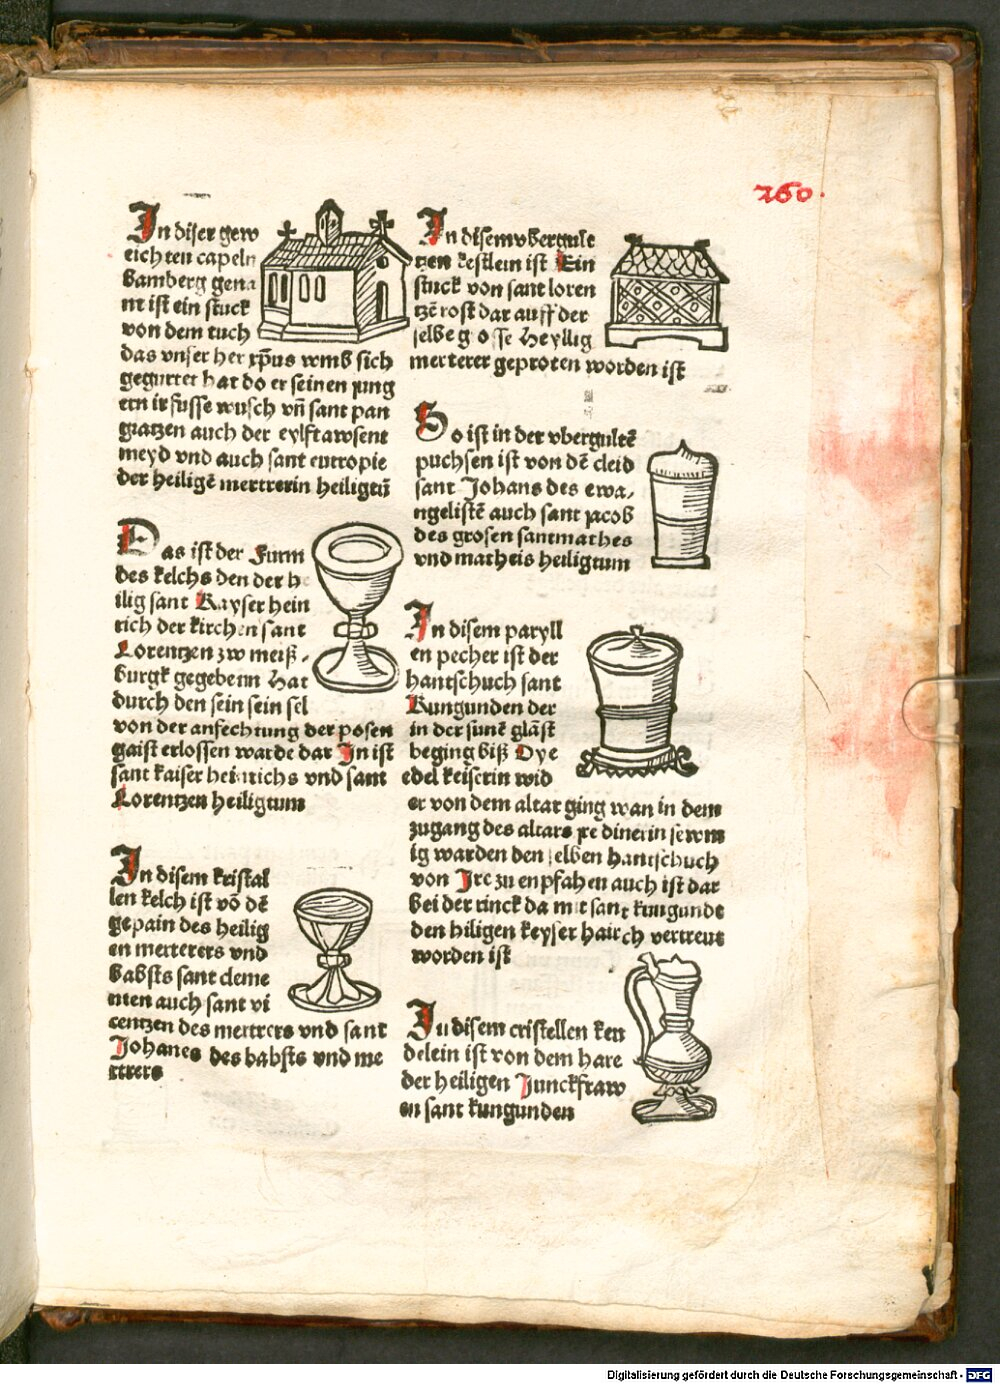 260.
In diser gew
eichten capeln
Bamberg gena
nt ist ein stuck
von dem tuch
das vnser her xp̄us vmb sich
gegurtet hat do er seinen iung
ern ir fusse wusch vn̄ sant pan
gratzen auch der eylftawsent
meyd vnd auch sant eutropie
der heiligē mertrerin heiligtū
Das ist der Furm
des kelchs den der he
ilig sant Kayser hein
rich der kirchen sant
Lorentzen zw meiß-
burgk gegebenn Hat
durch den sein sein sel
von der anfechtung der posen
gaist erlossen warde dar In ist
sant kaiser heinrichs vnd sant
Lorentzen heiligtum
In disem kristal
len kelch ist vō dē
gepain des heilig
en merterers vnd
babsts sant cleme
nten auch sant vi
centzen des mertrers vnd sant
Johanes des babsts vnd me
rtrers
In disem vbergult
ten kestlein ist Ein
stuck von sant loren
tzē rost dar auff der
selbe grosse Heyllig
merterer geproten worden ist
So ist in der vbergultē
puchsen ist von dē cleid
sant Johans des ewa-
ngelistē auch sant jacob
des grosen sant mathes
vnd matheis heiligtum
In disem paryll
en pecher ist der
hantschuch sant
Kungunden der
in der sunē glāst
beging biß Dye
edel keiserin wid
er von dem altar ging wan in dem
zugang des altars ire dinerin sewm
ig warden den selben hantschuch
von Ire zu enpfahen auch ist dar
bei der rinck da mit sant kungunde
den hiligen keyser hairch vertreut
worden ist
In disem cristellen ken
delein ist von dem hare
der heiligen Junckfraw
en sant kungunden
Digitalisierung gefördert durch die Deutsche Forschungsgemeinschaft - DFG